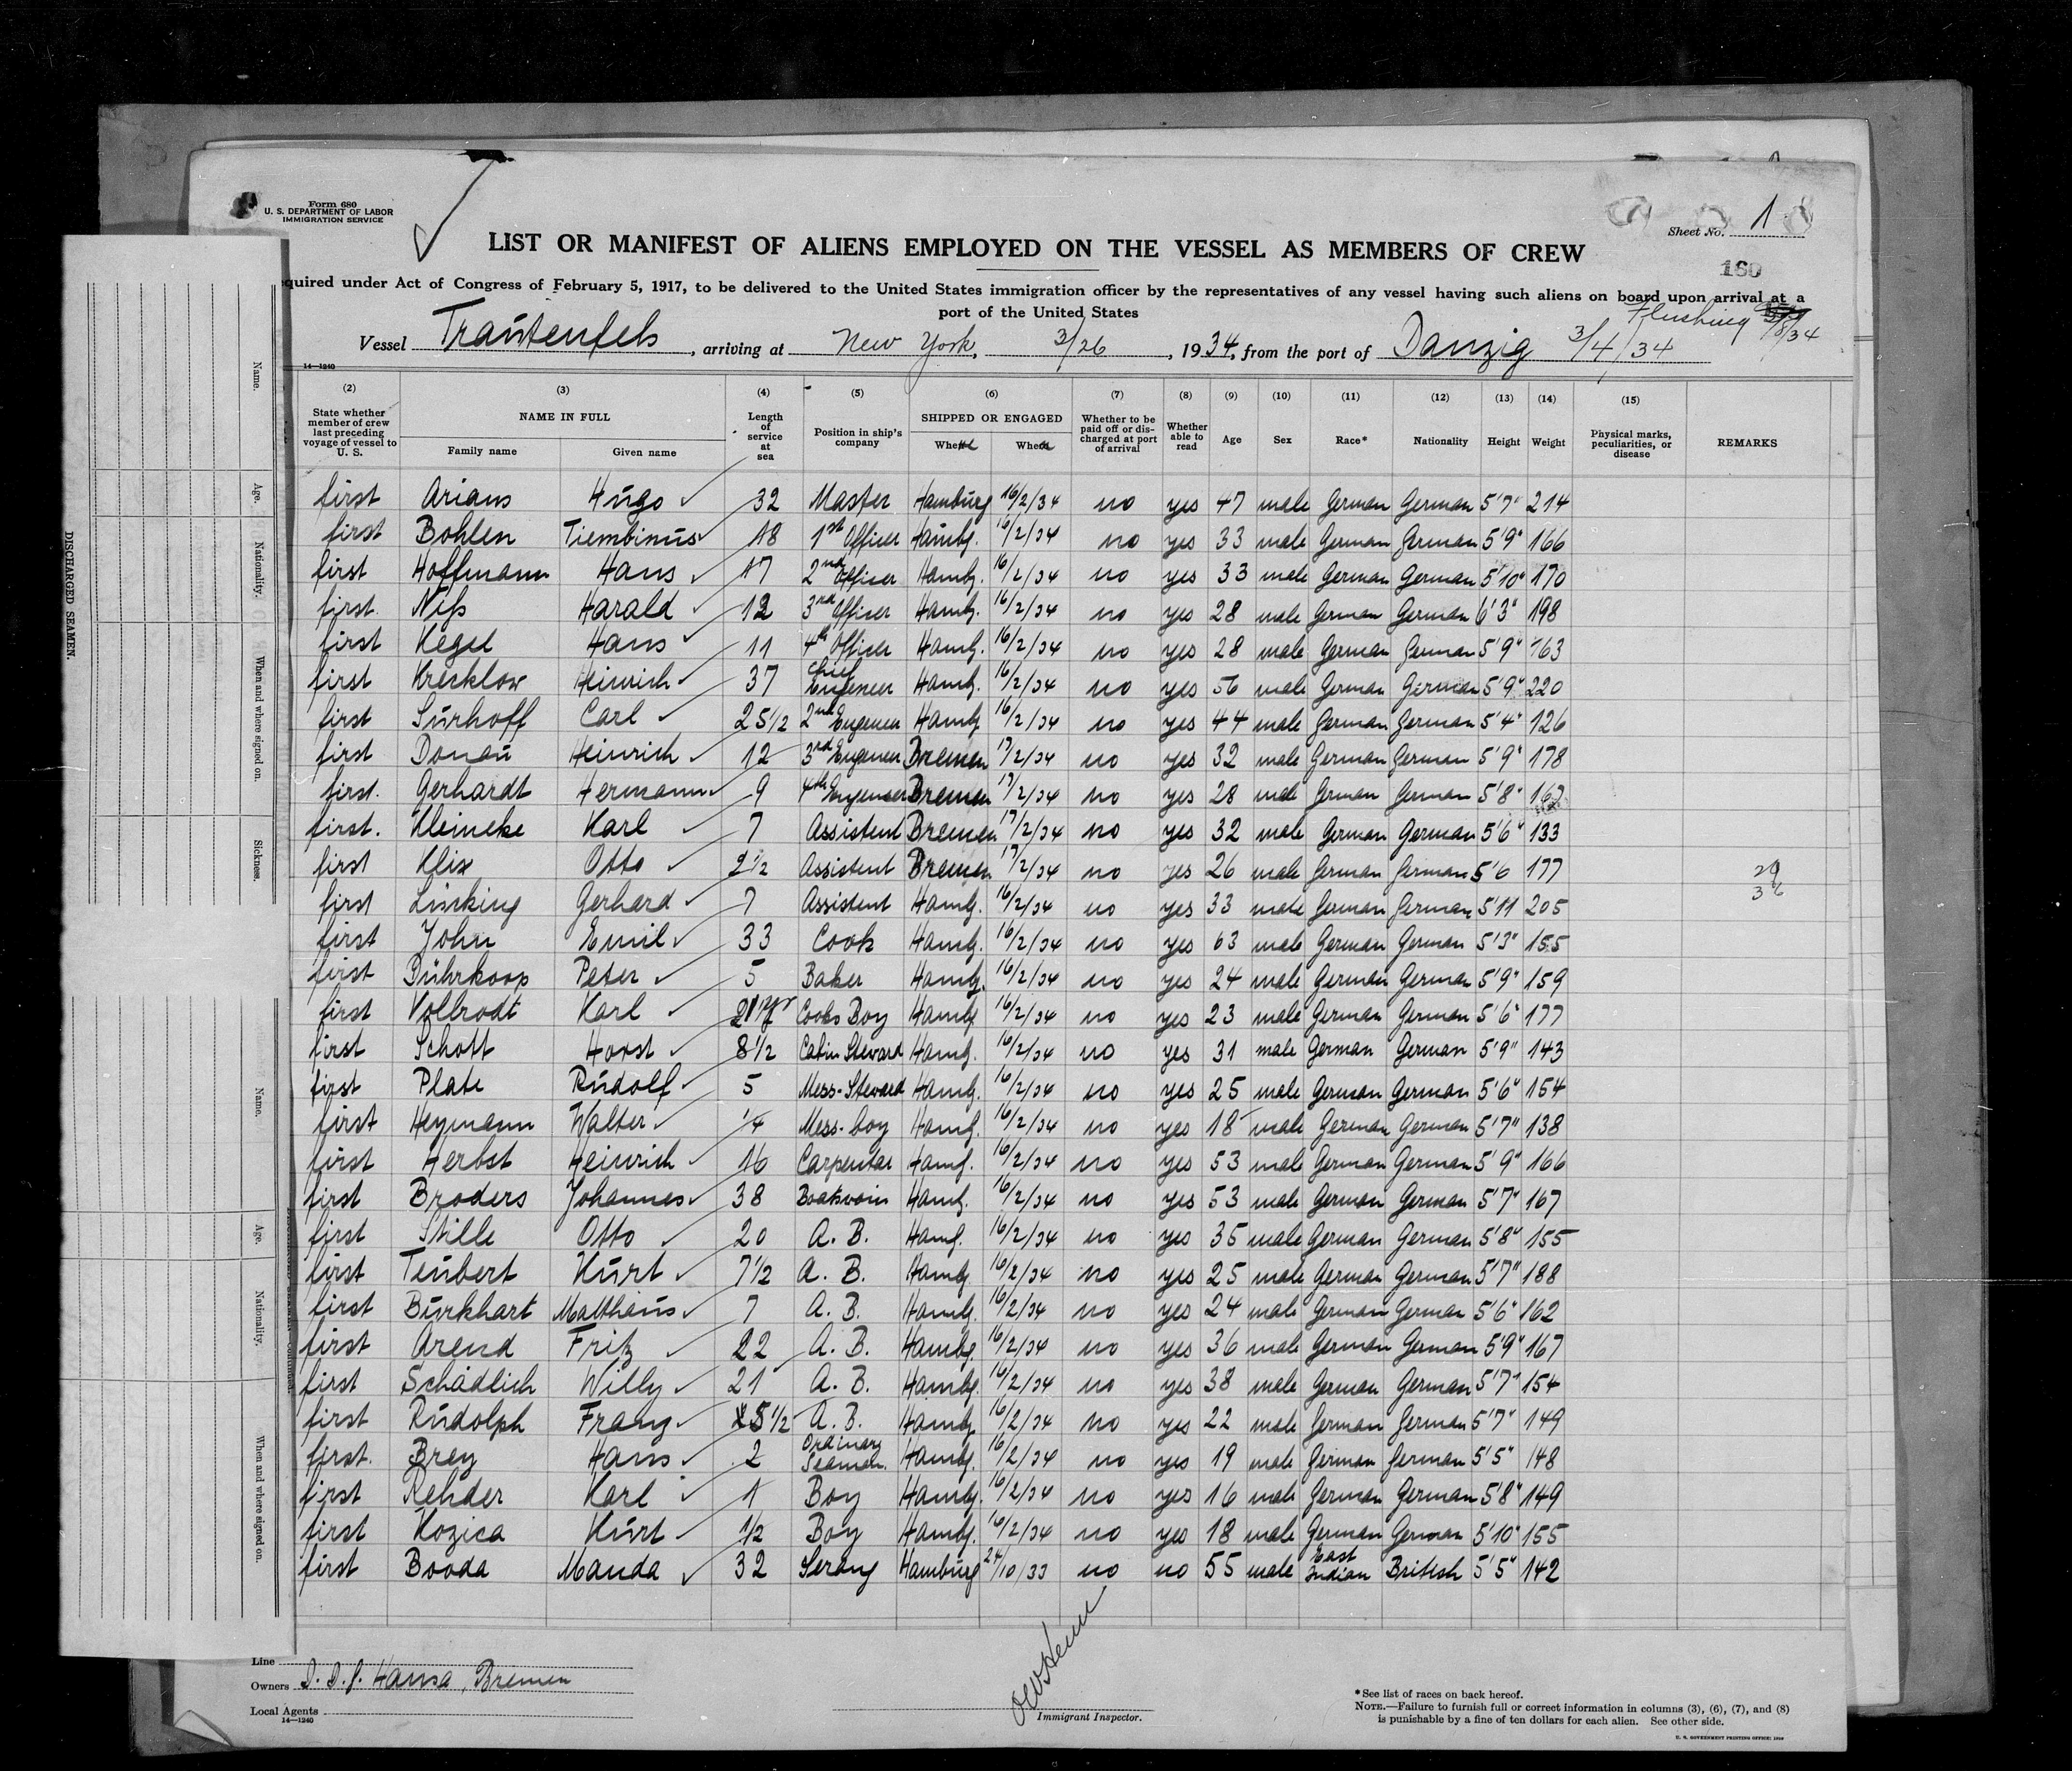 Form 680
U. S. DEPARTMENT OF LABOR
IMMIGRATION SERVICE
Sheet No. 1
160
LIST OR MANIFEST OF ALIENS EMPLOYED ON THE VESSEL AS MEMBERS OF CREW
quired under Act of Congress of February 5, 1917, to be delivered to the United States immigration officer by the representatives of any vessel having such aliens on board upon arrival at a
port of the United States
Flushing
Vessel Trautenfels, arriving at New York, 3/26, 1934, from the port of Danzig 3/4/34
14—1240
(2) (3) (4) (5) (6) (7) (8) (9) (10) (11) (12) (13) (14) (15)
State whether member of crew last preceding voyage of vessel to U. S. NAME IN FULL Family name Given name Length of service at sea Position in ship's company SHIPPED OR ENGAGED Whether to be paid off or discharged at port of arrival Whether able to read Age Sex Race* Nationality Height Weight Physical marks, peculiarities, or disease REMARKS
first Arians Hugo 32 Master Hamburg 16/2/34 no yes 47 male German German 5'7" 214
first Bohlen Tiembinus 18 1st Officer Hambg. 16/2/34 no yes 33 male German German 5'9" 166
first Hoffmann Hans 17 2nd Officer Hambg. 16/2/34 no yes 33 male German German 5'10" 170
first Niß Harald 12 3rd Officer Hambg. 16/2/34 no yes 28 male German German 6'3" 198
first Kegel Hans 11 4th Officer Hambg. 16/2/34 no yes 28 male German German 5'9" 163
first Krecklow Heinrich 37 Chief Engeneer Hambg. 16/2/34 no yes 56 male German German 5'9" 220
first Surhoff Carl 25 1/2 2nd Engeneer Hambg 16/2/34 no yes 44 male German German 5'4" 126
first Donau Heinrich 12 3rd Engeneer Bremen 17/2/34 no yes 32 male German German 5'9" 178
first. Gerhardt Hermann 9 4th Engeneer Bremen 17/2/34 no yes 28 male German German 5'8"
first. Kleineke Karl 7 Assistent Bremen 17/2/34 no yes 32 male German German 5'6" 133
first Klix Otto 2 1/2 Assistent Bremen 17/2/34 no yes 26 male German German 5'6 177
first Linking Gerhard 7 Assistent Hambg. 16/2/34 no yes 33 male German German 5'11 205
first John Emil 33 Cook Hambg. 16/2/34 no yes 63 male German German 5'3" 155
first Bührkoop Peter 5 Baker Hambg. 16/2/34 no yes 24 male German German 5'9" 159
first Vollrodt Karl Cooks Boy Hambg 16/2/34 no yes 23 male German German 5'6" 177
first Schott Horst 8 1/2 Cabin Steward Hambg. 16/2/34 no yes 31 male German German 5'9" 143
first Plate Rudolf 5 Mess-Steward Hambg. 16/2/34 no yes 25 male German German 5'6" 154
first Heymann Walter 1/4 Mess-boy Hambg. 16/2/34 no yes 18 male German German 5'7" 138
first Herbst Heinrich 16 Carpenter Hambg. 16/2/34 no yes 53 male German German 5'9" 166
first Broders Johannes 38 Boatswain Hambg. 16/2/34 no yes 53 male German German 5'7" 167
first Stille Otto 20 A. B. Hambg. 16/2/34 no yes 35 male German German 5'8" 155
first Teubert Kurt 7 1/2 A. B. Hambg 16/2/34 no yes 25 male German German 5'7" 188
first Burkhart Matthäus 7 A. B. Hambg. 16/2/34 no yes 24 male German German 5'6" 162
first Arend Fritz 22 A. B. Hambg. 16/2/34 no yes 36 male German German 5'9" 167
first Schädlich Willy 21 A. B. Hambg. 16/2/34 no yes 38 male German German 5'7" 154
first Rudolph Franz 5 1/2 A. B. Hambg 16/2/34 no yes 22 male German German 5'7" 149
first. Brey Hans 2 Ordinary Seaman. Hambg. 16/2/34 no yes 19 male German German 5'5" 148
first Rehder Karl 1 Boy Hambg. 16/2/34 no yes 16 male German German 5'8" 149
first Kozica Kurt 1/2 Boy Hambg. 16/2/34 no yes 18 male German German 5'10" 155
first Booda Manda 32 Serang Hamburg 24/10/33 no no 55 male East Indian British 5'5" 142
Line
Owners D. D. G. Hansa, Bremen
Local Agents
14—1240
Immigrant Inspector.
*See list of races on back hereof.
NOTE.—Failure to furnish full or correct information in columns (3), (6), (7), and (8)
is punishable by a fine of ten dollars for each alien. See other side.
U. S. GOVERNMENT PRINTING OFFICE:
DISCHARGED SEAMEN.
Name.
Age.
Nationality.
When and where signed on.
Sickness.
Name.
Age.
Nationality.
When and where signed on.